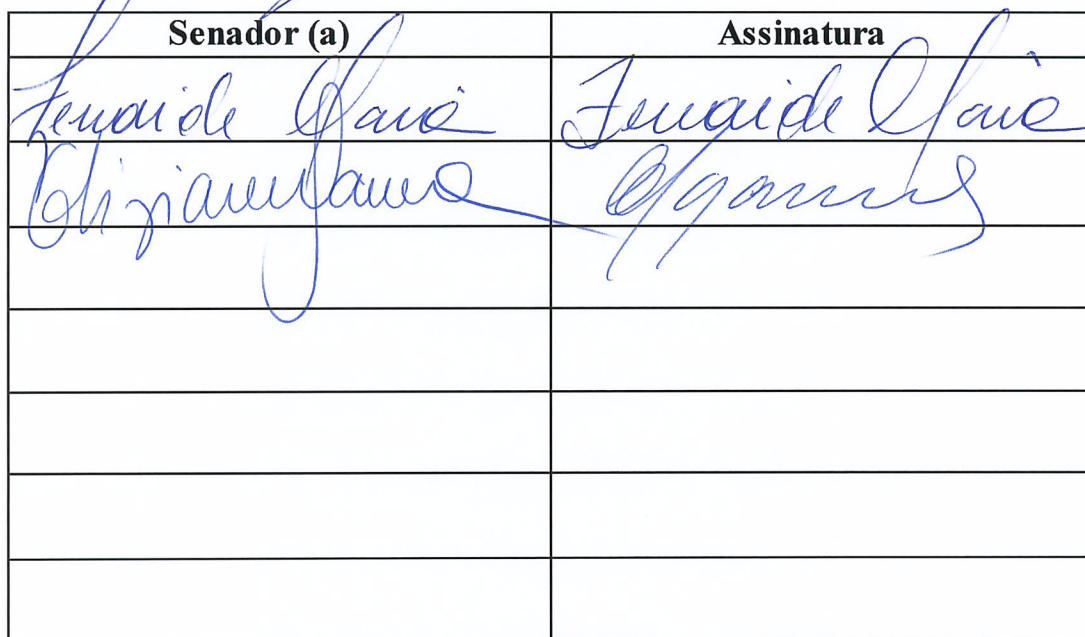 Senador (a) Assinatura
Zenaide Maia Zenaide Maia
Eliziane Gama